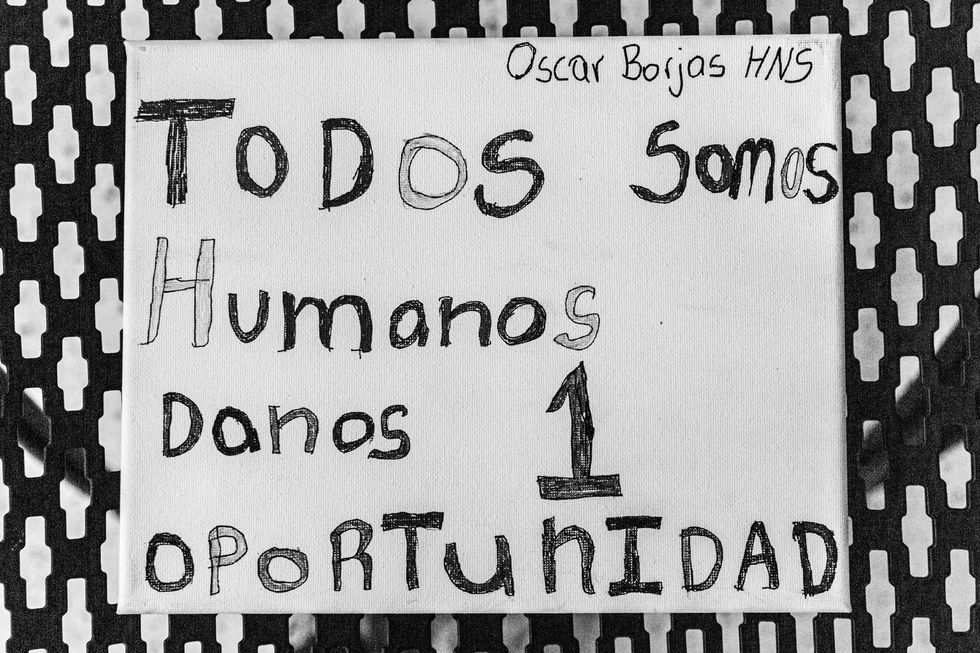 Oscar Borjas HNS
TODOS Somos
Humanos
Danos 1
OPORTunIDAD